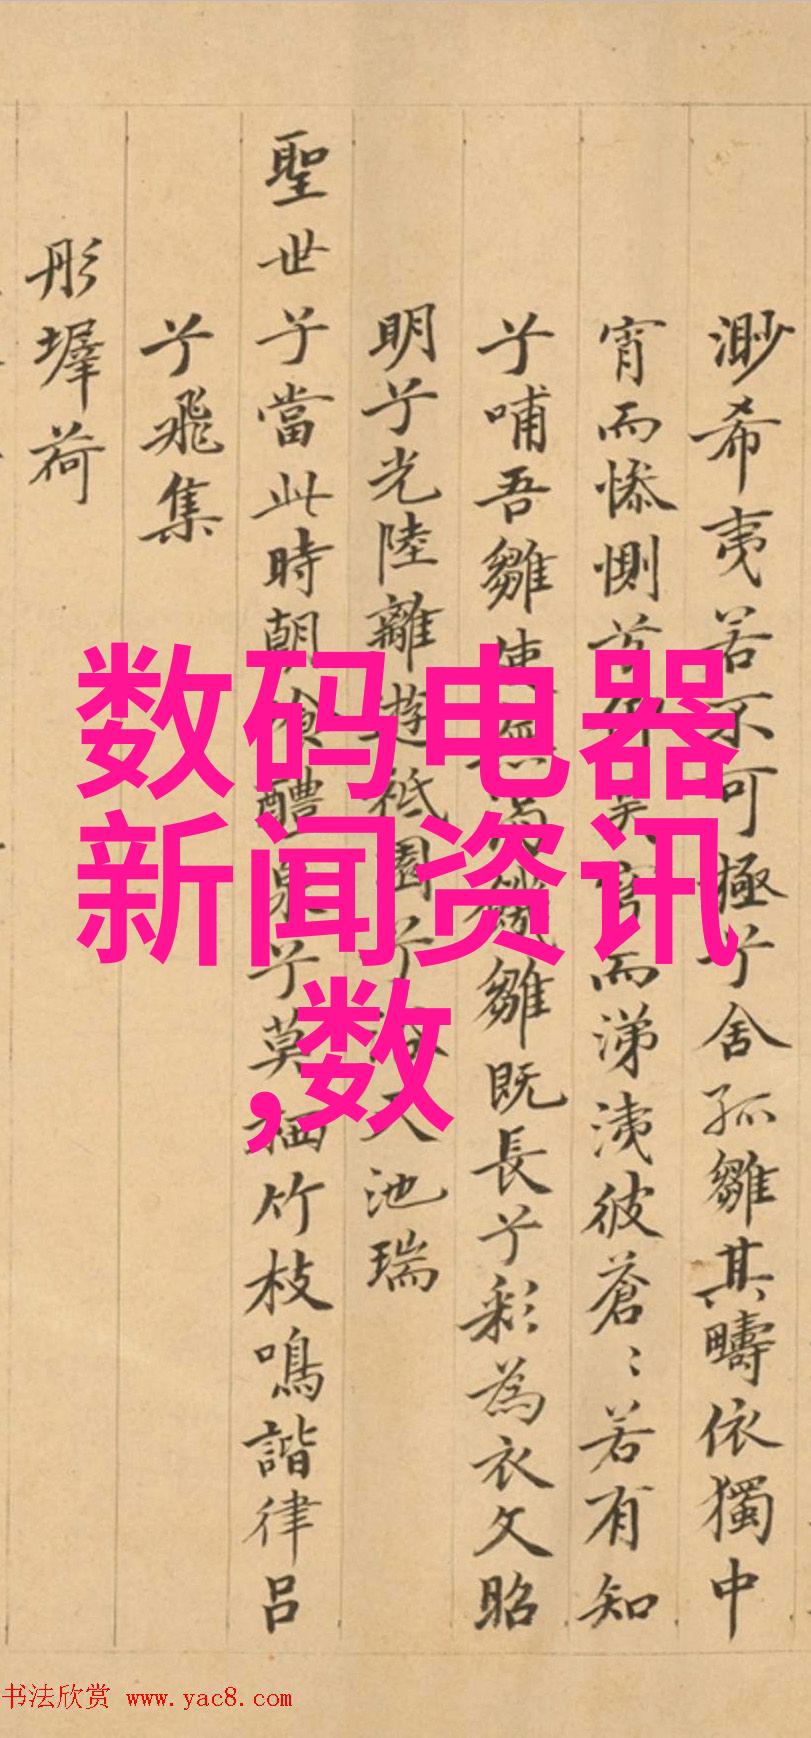 渺希夷若不可極兮舍孤雛其疇依獨中
宵而惨惻兮仰穹而涕洟彼蒼〻若有知
兮哺吾雛使無飢雛既長兮彩為衣文昭
明兮光陸離遊祗園兮天池瑞
聖世兮當此時朝醴泉兮莫栖竹枝鳴諧律吕
兮飛集
彤墀荷
数码电器
新闻资讯
,数
书法欣赏 www.yac8.com